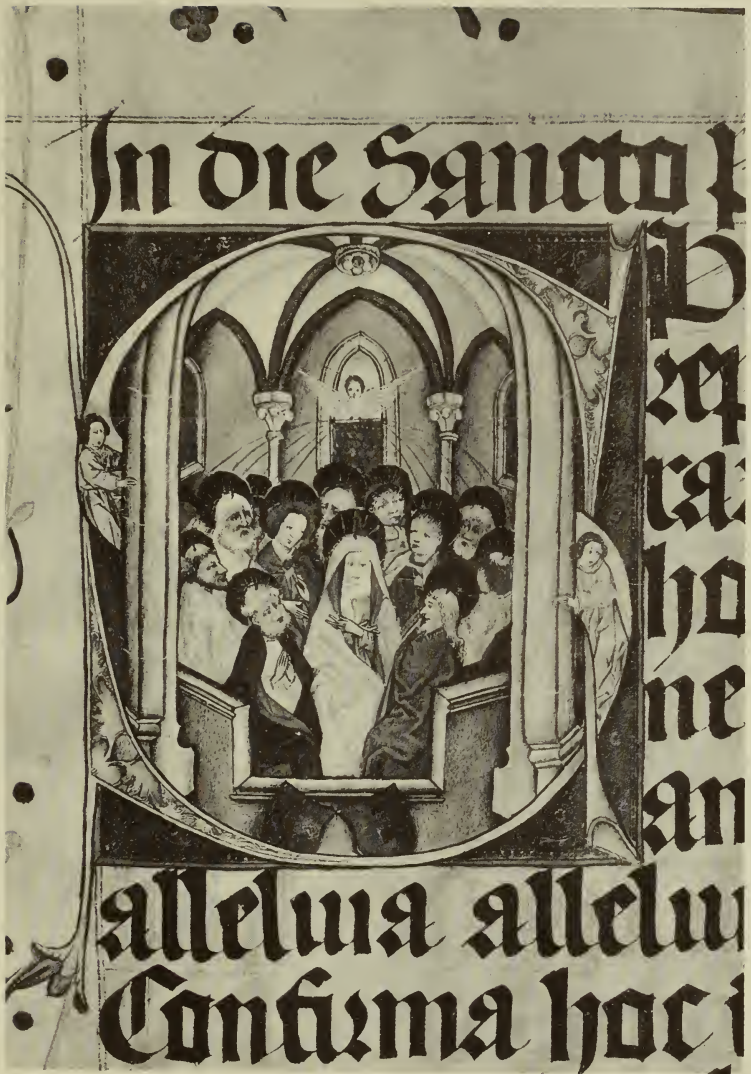 In die Sancto p
SP
rep
ra
ho
ne
an
alleluia allelui
Confirma hoc